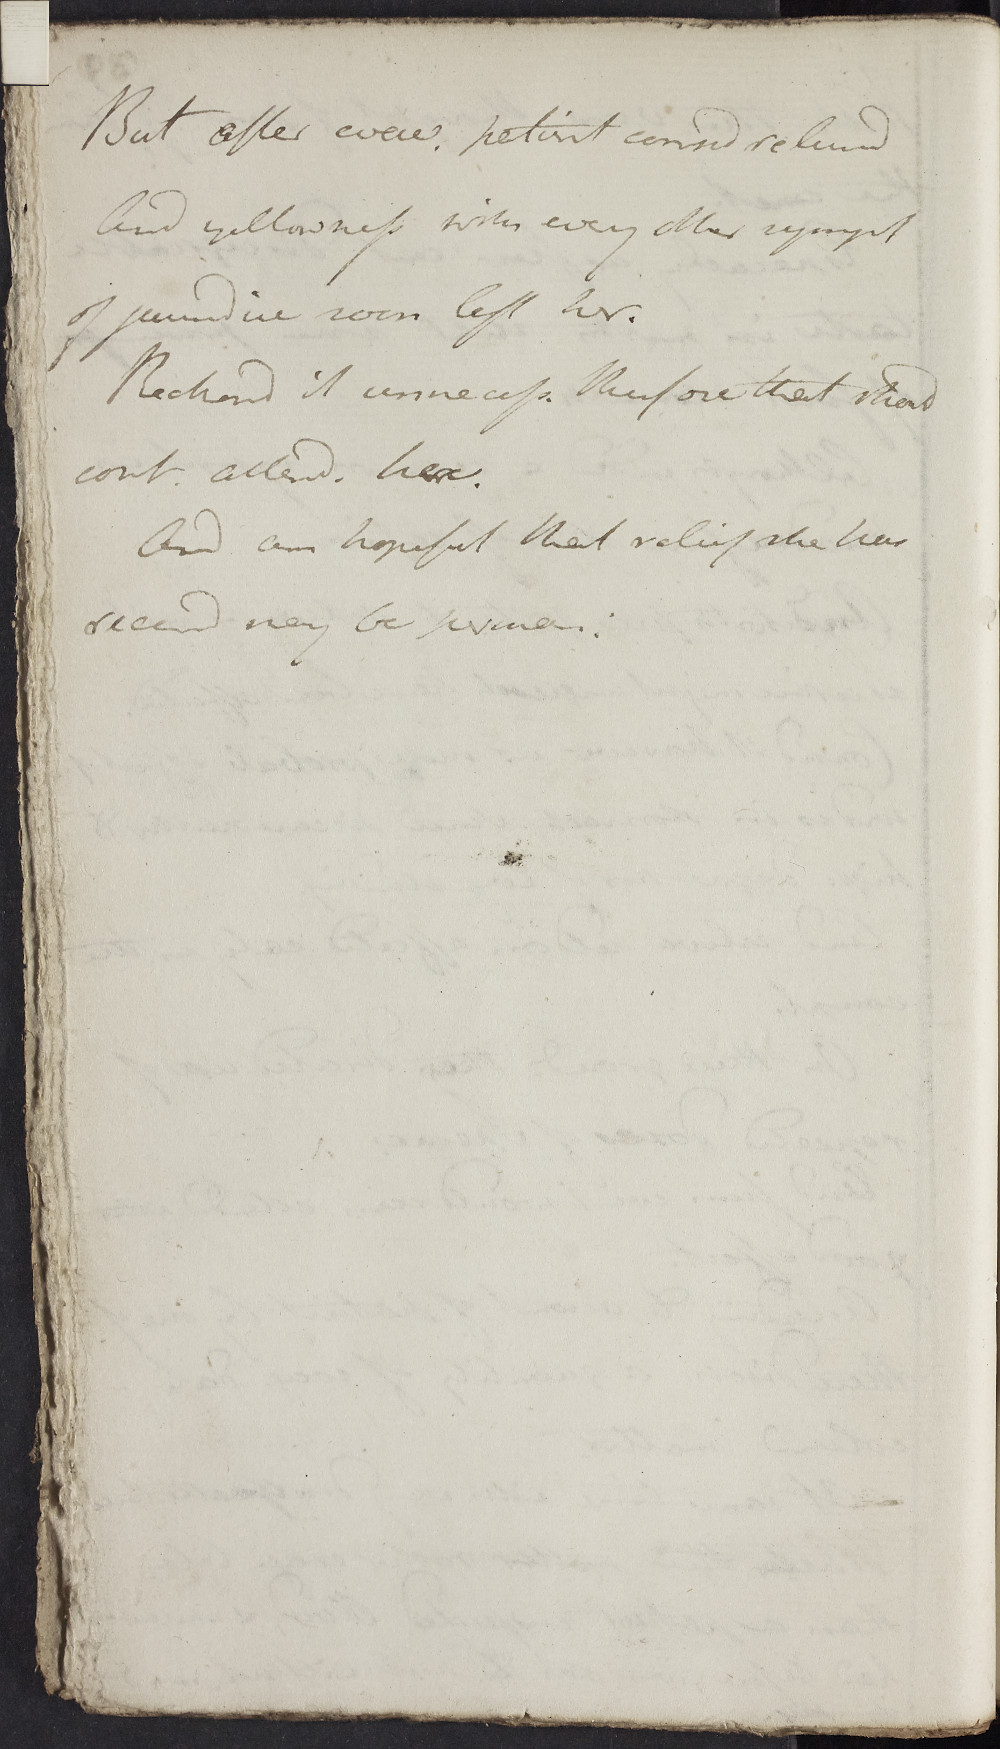 But after evac. patient consid relievd
And yellowness with every other sympt
of jaundice soon left her.
Reckond it unnecess. therefore that shoud
cont. attend. her.
And am hopeful that relief she has
receivd may be perman: